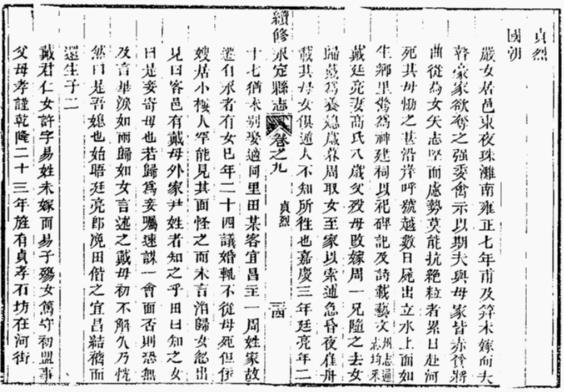 貞烈
國朝
嚴女居邑東夜珠灘南雍正七年甫及笄未嫁而夫
家家欲奪之强委禽示以期夫與母家皆赤將
曲從為女矢志堅而慮勢莫能抗絶粒者累日赴河
死其母慟之甚沿岸呼號越數日屍出立水上面如
生鄉里驚為神建祠以祀碑記及詩載藝文州志通志均採
戴廷亮妻高氏八歲父歿母改嫁周一兄隨之去女
歸戴為養媳歲暮周取女至家以索逋急昏夜雇舟
載其母女俱遁人不知所往也嘉慶三年廷亮年二
續修永定縣志 卷之九 貞烈
十七猶未別娶適同里田某客宜昌主一周姓家故
有求者有女已年二十四議婚輒不從母死但依
嫂居小樓人罕能見其面怪之而未言消歸女忽出
見曰客邑有戴母外家尹姓者知之乎田曰知之女
曰是妾寄母也若歸為妾囑速謀一會面否則恐無
及言畢淚如雨歸如女言述之戴母初不解久乃恍
然曰是吾媳也始晤廷亮郎浼田偕之宜昌結褵而
還生子二
戴君仁女許字易姓未嫁而易子殤女篤守初盟事
父母孝謹乾隆二十三年旌有貞孝石坊在河街